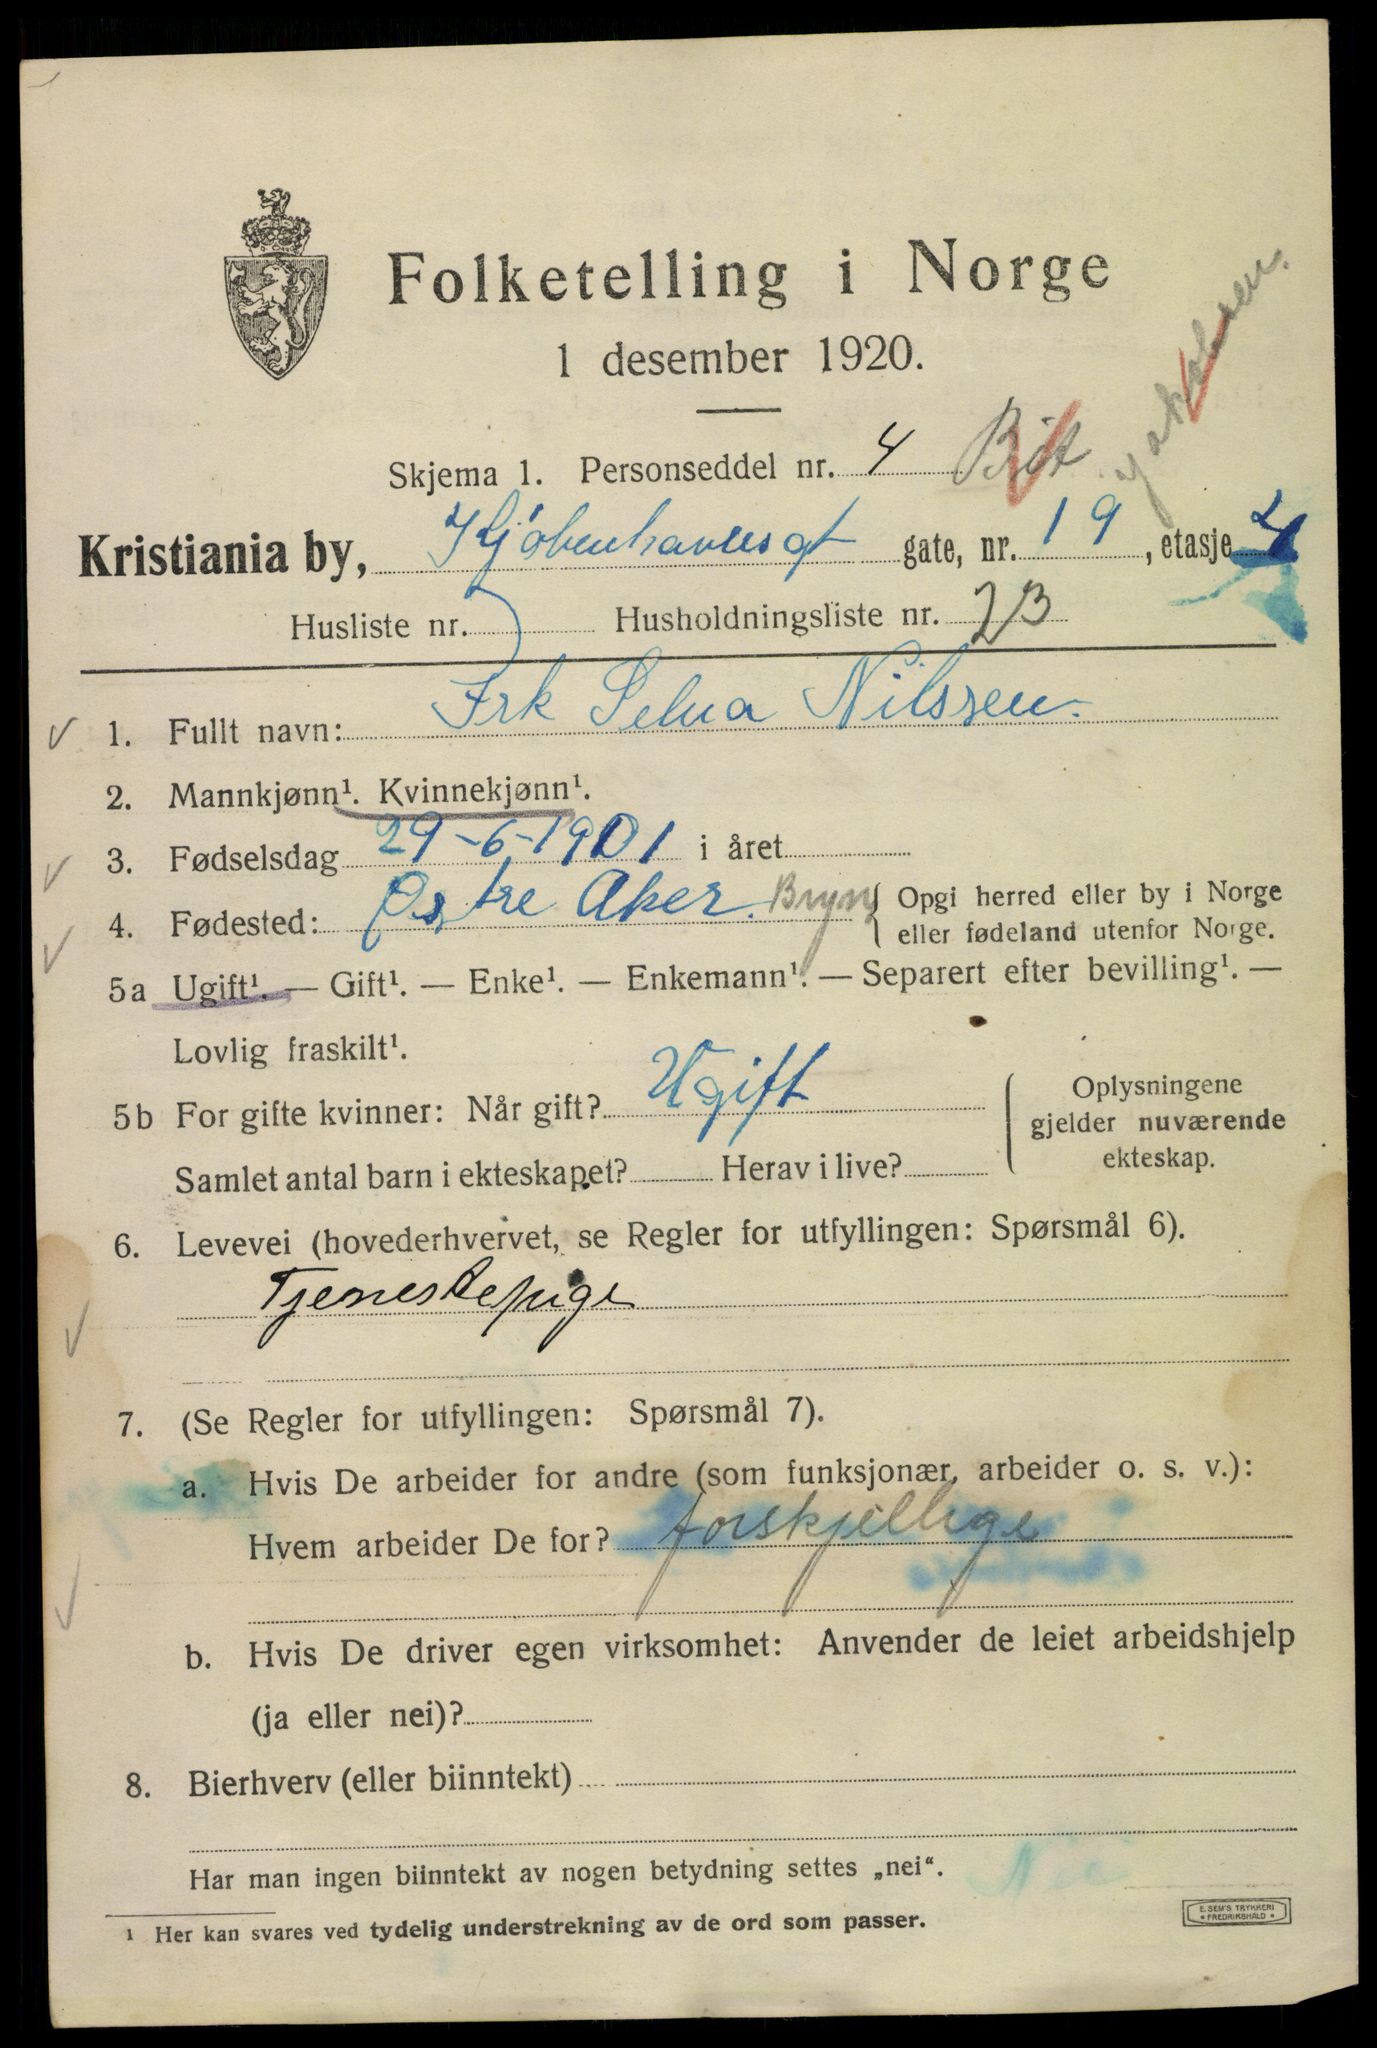 Folketelling i Norge
1 desember 1920.
Skjema 1. Personseddel nr. 4
Kristiania by, Kjøbenhavnsgt gate, nr. 19, etasje 4
Husliste nr. Husholdningsliste nr. 23
1. Fullt navn: Frk Selma Nilssen.
2. Mannkjønn¹. Kvinnekjønn¹.
3. Fødselsdag 29-6-1901 i året
4. Fødested: Østre Aker. Bryn { Opgi herred eller by i Norge
eller fødeland utenfor Norge.
5a Ugift¹. — Gift¹. — Enke¹. — Enkemann¹. — Separert efter bevilling¹. —
Lovlig fraskilt¹.
5b For gifte kvinner: Når gift? Ugift
Samlet antal barn i ekteskapet? Herav i live?
Oplysningene
gjelder nuværende
ekteskap.
6. Levevei (hovederhvervet, se Regler for utfyllingen: Spørsmål 6).
Tjenestepige
7. (Se Regler for utfyllingen: Spørsmål 7).
a. Hvis De arbeider for andre (som funksjonær, arbeider o. s. v.):
Hvem arbeider De for? forskjellige
b. Hvis De driver egen virksomhet: Anvender de leiet arbeidshjelp
(ja eller nei)?
8. Bierhverv (eller biinntekt)
Har man ingen biinntekt av nogen betydning settes „nei“. Nei
¹ Her kan svares ved tydelig understrekning av de ord som passer.
E. SEM'S TRYKKERI
• FREDRIKSHALD •